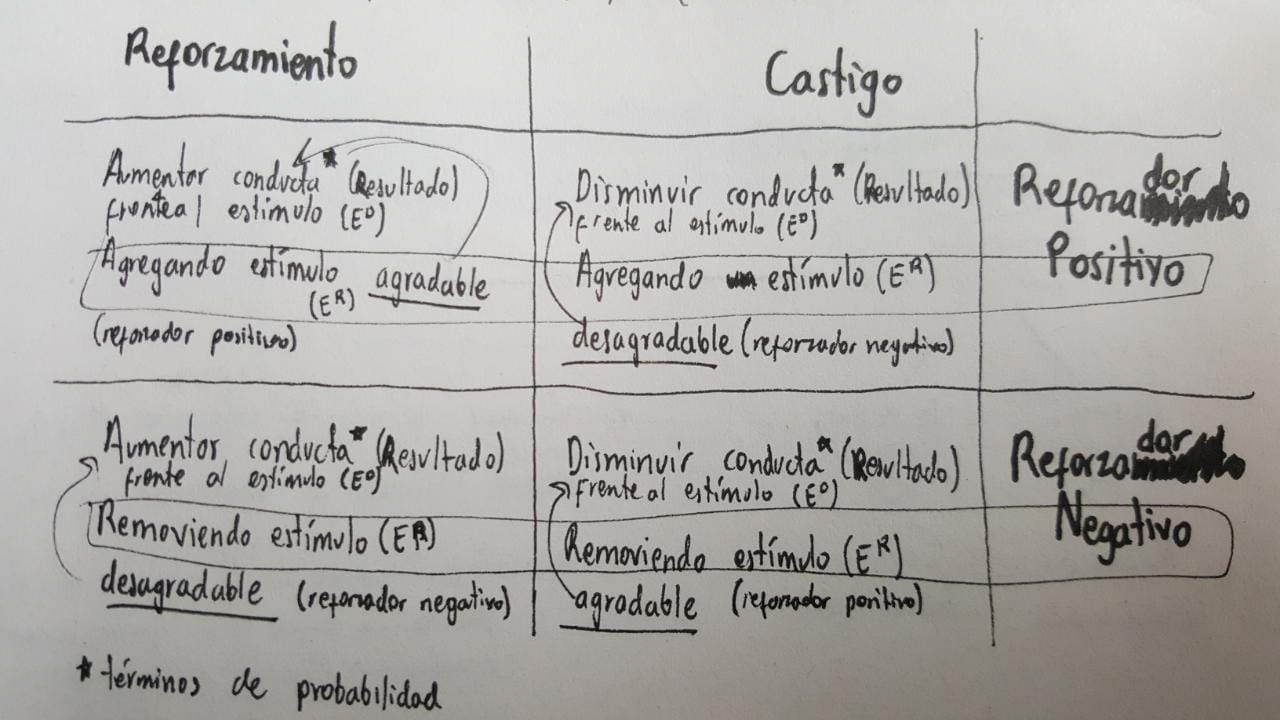 Reforzamiento
Castigo
Aumentar conducta* (Resultado)
frente al estímulo (Eᴰ)
Agregando estímulo agradable
(Eᴿ)
(reforzador positivo)
Disminuir conducta* (Resultado)
frente al estímulo (Eᴰ)
Agregando estímulo (Eᴿ)
desagradable (reforzador negativo)
Reforzador
Positivo
Aumentar conducta* (Resultado)
frente al estímulo (Eᴰ)
Removiendo estímulo (Eᴿ)
desagradable (reforzador negativo)
Disminuir conducta* (Resultado)
frente al estímulo (Eᴰ)
Removiendo estímulo (Eᴿ)
agradable (reforzador positivo)
Reforzador
Negativo
* términos de probabilidad